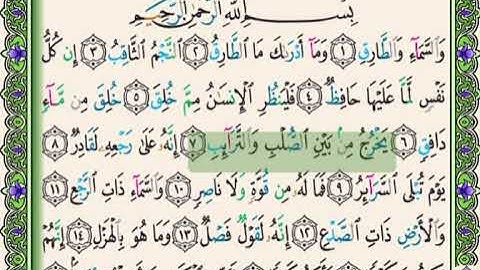 بِسْمِ ٱللَّهِ ٱلرَّحْمَٰنِ ٱلرَّحِيمِ
وَٱلسَّمَآءِ وَٱلطَّارِقِ ١ وَمَآ أَدْرَىٰكَ مَا ٱلطَّارِقُ ٢ ٱلنَّجْمُ ٱلثَّاقِبُ ٣ إِن كُلُّ
نَفْسٍ لَّمَّا عَلَيْهَا حَافِظٌ ٤ فَلْيَنظُرِ ٱلْإِنسَٰنُ مِمَّ خُلِقَ ٥ خُلِقَ مِن مَّآءٍ
دَافِقٍ ٦ يَخْرُجُ مِنۢ بَيْنِ ٱلصُّلْبِ وَٱلتَّرَآئِبِ ٧ إِنَّهُۥ عَلَىٰ رَجْعِهِۦ لَقَادِرٌ ٨
يَوْمَ تُبْلَى ٱلسَّرَآئِرُ ٩ فَمَا لَهُۥ مِن قُوَّةٍ وَلَا نَاصِرٍ ١٠ وَٱلسَّمَآءِ ذَاتِ ٱلرَّجْعِ ١١
وَٱلْأَرْضِ ذَاتِ ٱلصَّدْعِ ١٢ إِنَّهُۥ لَقَوْلٌ فَصْلٌ ١٣ وَمَا هُوَ بِٱلْهَزْلِ ١٤ إِنَّهُمْ